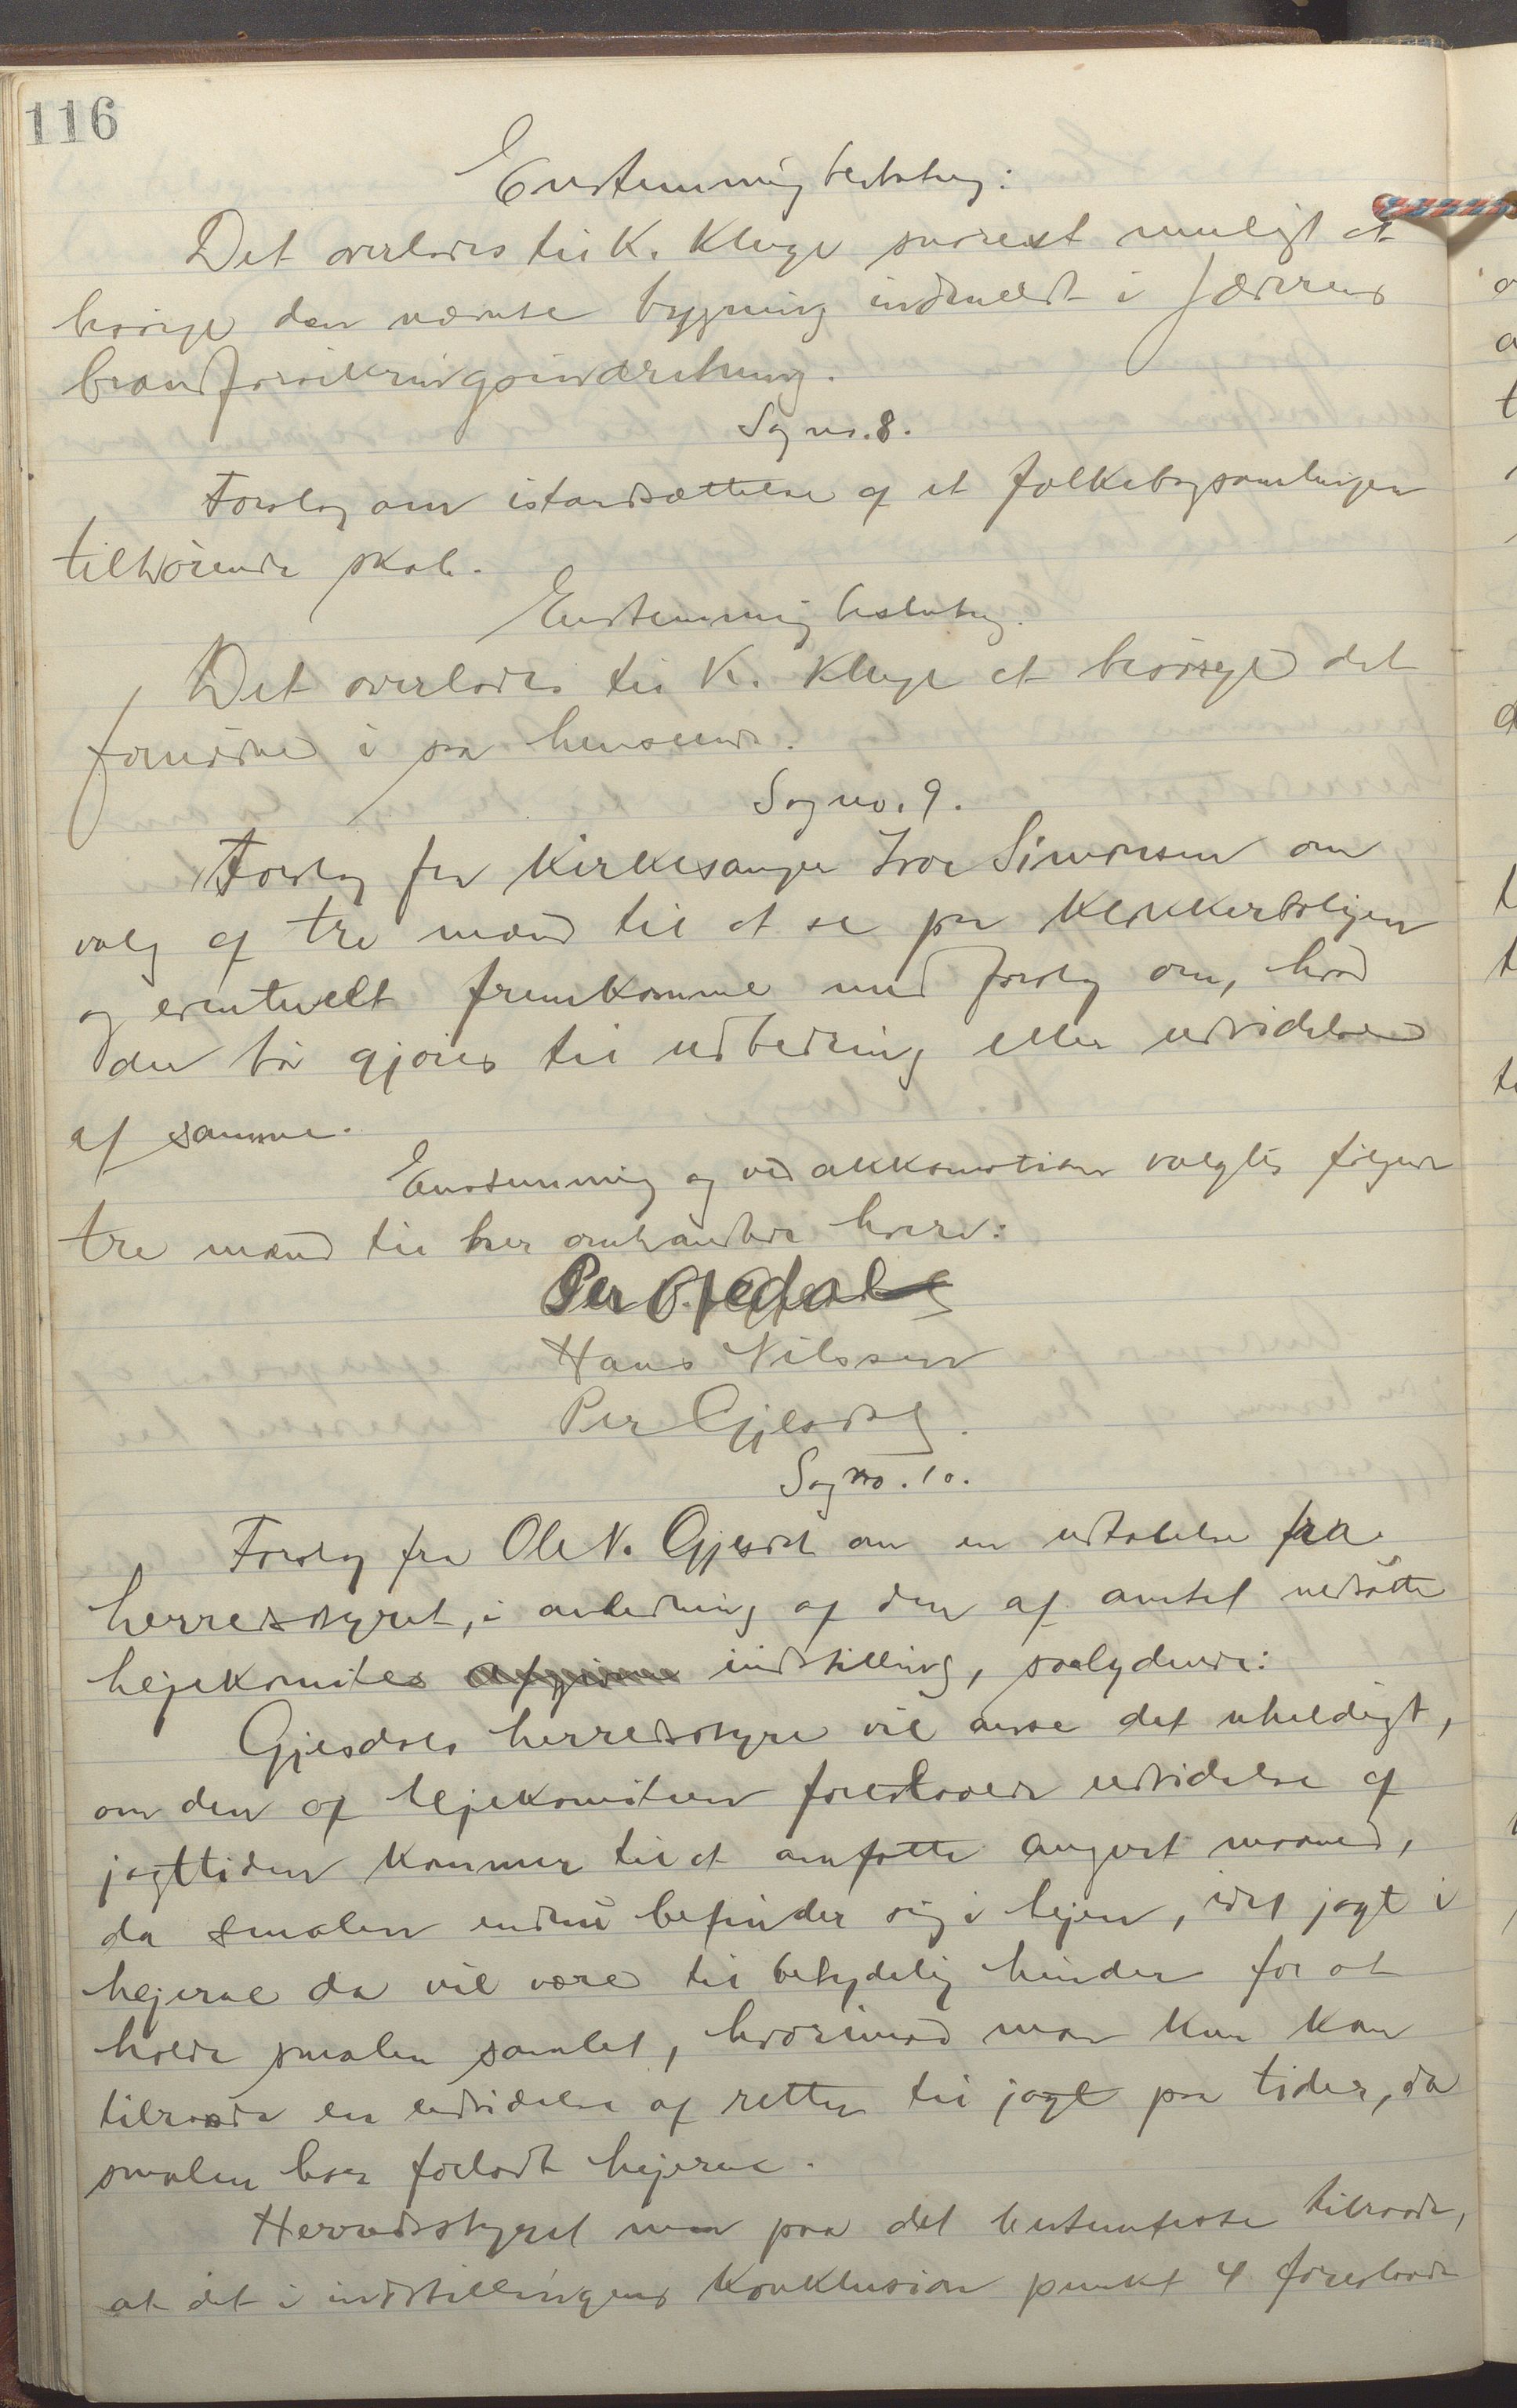 116
Enstemmig beslutning:
Det overlades til K. Kluge snarest muligt at
besørge den nævnte bygning indmeldt i Jæderens
brandforsikringsindretning.
Sag no. 8.
Forslag om istandsættelse af et folkebogsamlingen
tilhørende skab.
Enstemmig beslutning.
Det overlades til K. Kluge at besørge det
fornødne i saa henseende.
Sag no. 9.
Forslag fra Kirkesanger Ivar Simonsen om
valg af tre mænd til at se paa Klokkerboligen
og eventuelt fremkomme med forslag om, hvad
der bør gjøres til udbedring eller udvidelse
af samme.
Enstemmig og ved akklamation valgtes følgende
tre mænd til her omhandlede hverv:
Per Ofedal
Hans Nilssen
Per Gjesdal.
Sag no. 10.
Forslag fra Ole N. Gjesdal om en udtalelse fra
herredsstyret, i anledning af den af amtet nedsatte
hejekomites indstilling, saalydende:
Gjesdals herredsstyre vil anse det uheldigt,
om den af hejekomiteen foreslaaede udvidelse af
jagttiden kommer til at omfatte august maaned,
da smalen endnu befinder sig i hejen, idet jagt i
hejerne da vil være til betydelig hinder for at
holde smalen samlet, hvorimod man kun kan
tilraade en udvidelse af retten til jagt paa tider, da
smalen har forladt hejerne.
Herredsstyret maa paa det bestemteste tilraade,
at det i indstillingens Konklusion punkt 4 foreslaaede